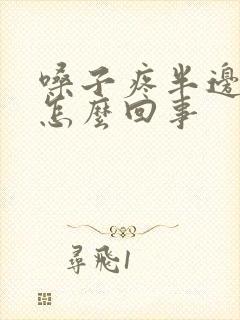 嗓子疼半邊
怎麼回事
尋飛1